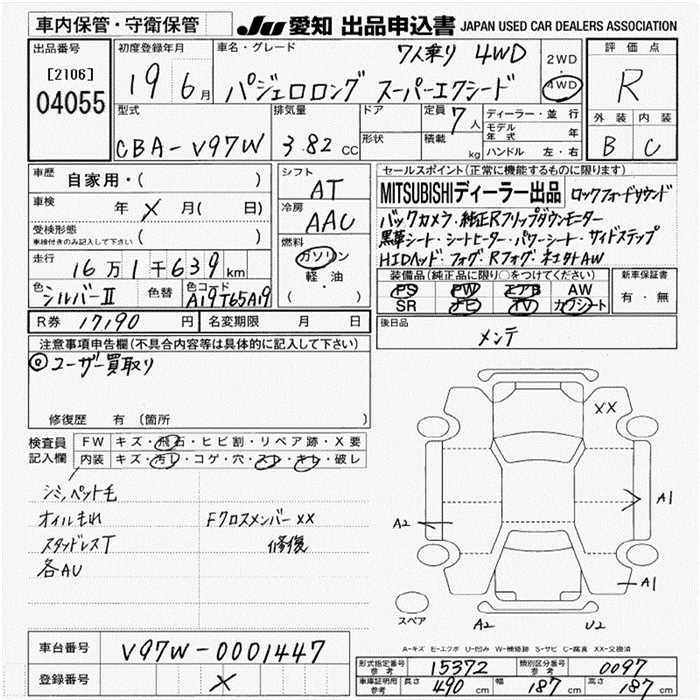 車内保管・守衛保管
JU 愛知 出品申込書 JAPAN USED CAR DEALERS ASSOCIATION
出品番号
[2106]
04055
初度登録年月
19 6月
車名・グレード
7人乗り 4WD
パジェロロング スーパーエクシード
2WD
4WD
評価点
R
外装 内装
B C
型式
CBA-V97W
排気量
3.82 CC
ドア
形状
定員 7人
積載 kg
ディーラー・並行
モデル年式 年
ハンドル 左・右
車歴 自家用・( )
車検 年 X 月( 日)
受検形態 ( )
車検付きのみ記入して下さい
走行 16万1千639km
色 シルバーII 色替 色コード A19T65A19
R券 17,190 円 名変期限 月 日
シフト
AT
冷房
AAC
燃料
ガソリン
軽・油
( )
セールスポイント(正常に機能するものに限ります)
MITSUBISHIディーラー出品 ロックフォードサウンド
バックカメラ・純正Rフリップダウンモニター
黒革シート・シートヒーター・パワーシート・サイドステップ
HIDヘッド・フォグ・Rフォグ・
装備品(純正品に限り○をつけてください)
PS PW エアB AW
SR ナビ TV カワシート
新車保証書
有・無
後日品
メンテ
注意事項申告欄(不具合内容等は具体的に記入して下さい)
◎ユーザー買取り
修復歴 有 〔箇所 〕
検査員記入欄
FW キズ・飛石・ヒビ割・リペア跡・X要
内装 キズ・汚レ・コゲ・穴・スレ・キレ・破レ
シミ、ペット毛
オイルもれ
スタッドレスT
各AU
Fクロスメンバー XX
修復
XX
A1
A2
A1
スペア
A2 U2
A=キズ E=エクボ U=凹ミ W=補修跡 S=サビ C=腐食 XX=交換済
車台番号 V97W-0001447
登録番号 X
形式指定番号 参考 15372 類別区分番号 参考 0097
車庫証明用 参考 長さ 490 cm 幅 187 cm 高さ 187 cm